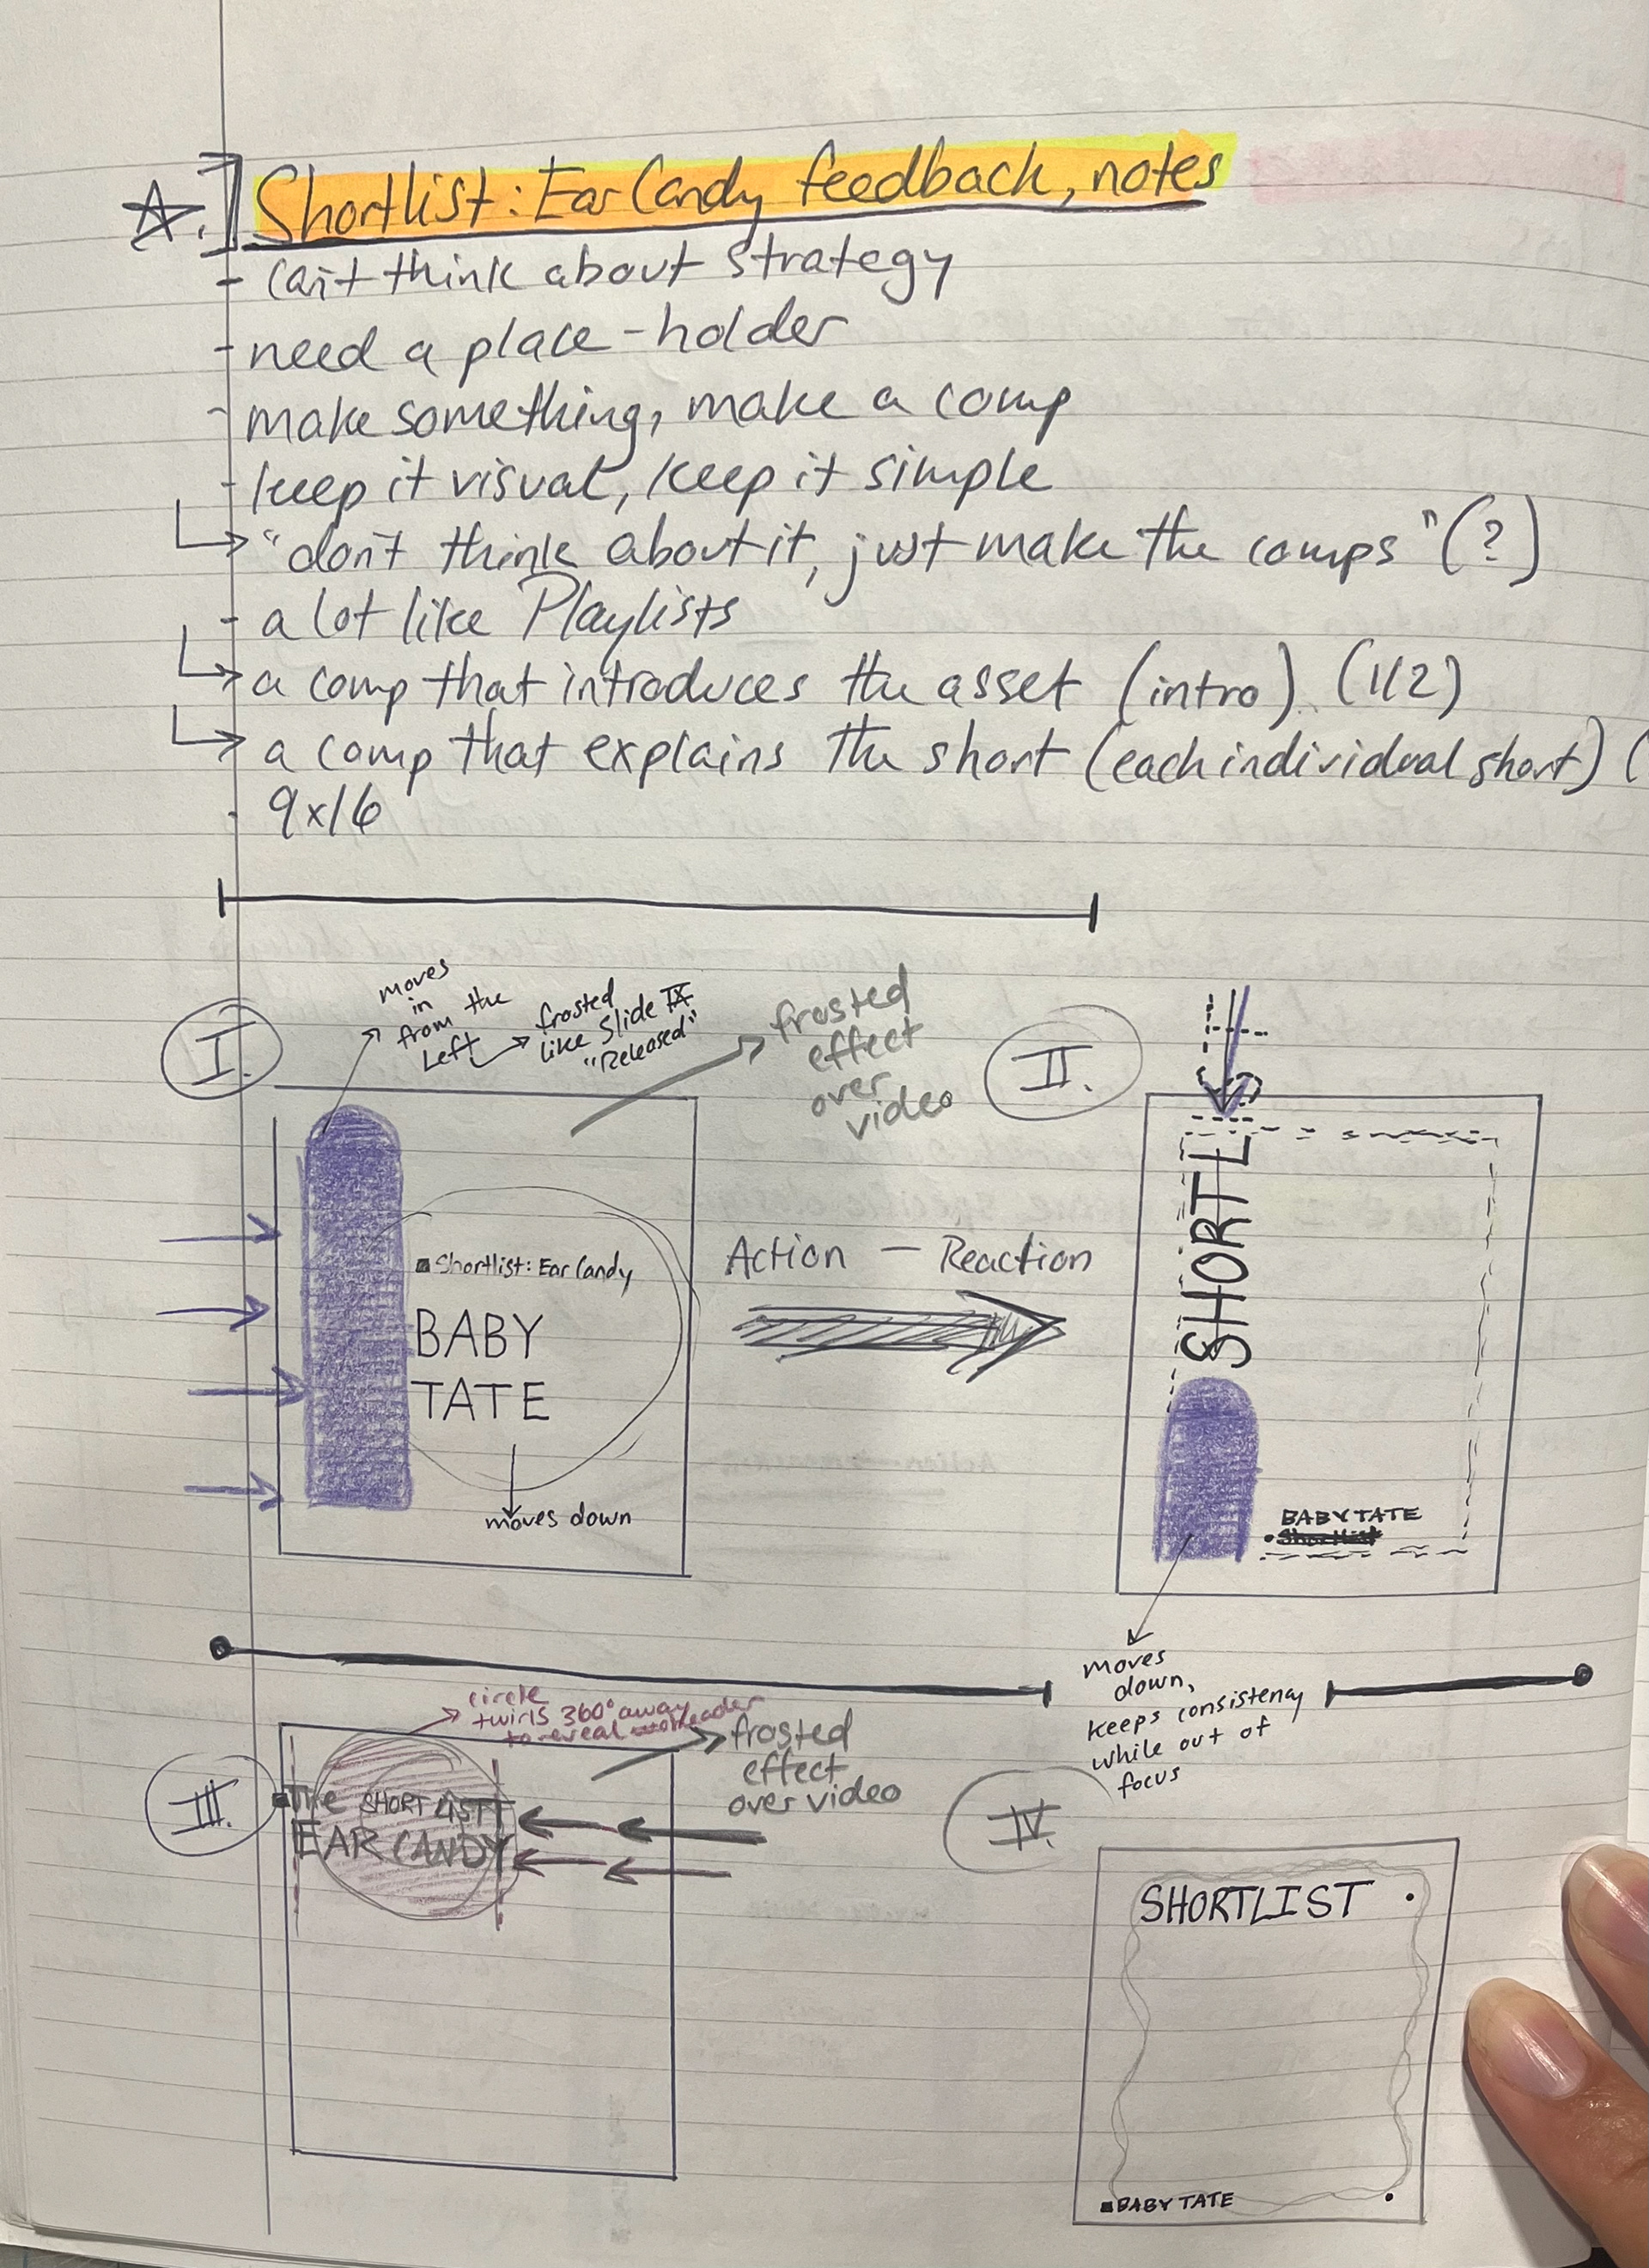 ☆. Shortlist: Ear Candy feedback, notes
- can't think about strategy
- need a place-holder
- make something, make a comp
- keep it visual, keep it simple
↳ "don't think about it, just make the comps" (?)
- a lot like Playlists
↳ a comp that introduces the asset (intro) (1/2)
↳ a comp that explains the short (each individual short) (
- 9x16
I.
moves
in
from the
left
frosted
like Slide IX
"Released"
frosted
effect
over
video
Shortlist: Ear Candy
BABY
TATE
moves down
Action — Reaction
II.
SHORTL
BABY TATE
moves
down,
keeps consistency
while out of
focus
III.
circle
twirls 360° away
to reveal header
frosted
effect
over video
The SHORTLIST
EAR CANDY
IV.
SHORTLIST
BABY TATE